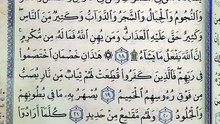 وَالنُّجُومُ وَالْجِبَالُ وَالشَّجَرُ وَالدَّوَآبُّ وَكَثِيرٌ مِّنَ النَّاسِ
وَكَثِيرٌ حَقَّ عَلَيْهِ الْعَذَابُ وَمَن يُهِنِ اللَّهُ فَمَا لَهُ مِن مُّكْرِمٍ
إِنَّ اللَّهَ يَفْعَلُ مَا يَشَآءُ ۩ ١٨ هَٰذَانِ خَصْمَانِ اخْتَصَمُوا
فِي رَبِّهِمْ فَالَّذِينَ كَفَرُوا قُطِّعَتْ لَهُمْ ثِيَابٌ مِّن نَّارٍ يُصَبُّ
مِن فَوْقِ رُءُوسِهِمُ الْحَمِيمُ ١٩ يُصْهَرُ بِهِ مَا فِي بُطُونِهِمْ
وَالْجُلُودُ ٢٠ وَلَهُم مَّقَامِعُ مِنْ حَدِيدٍ ٢١ كُلَّمَآ أَرَادُوٓا